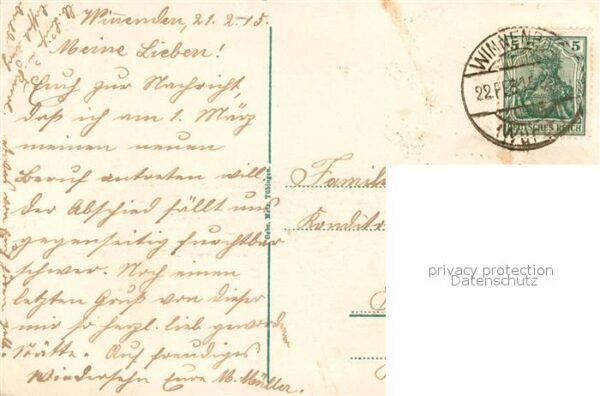 Winnenden, 21.2.15.
Meine Lieben!
Euch zur Nachricht,
daß ich am 1. März
meinen neuen
Beruf antreten will.
Der Abschied fällt uns
gegenseitig furchtbar
schwer. Noch einen
letzten Gruß von dieser
mir so herzl. lieb geworden
Stätte. Auf freudiges
Wiedersehn Eure M. Müller.
Gebr. Metz, Tübingen.
WINNEN
5
DEUTSCHES REICH
Familie
Konditor
privacy protection
Datenschutz